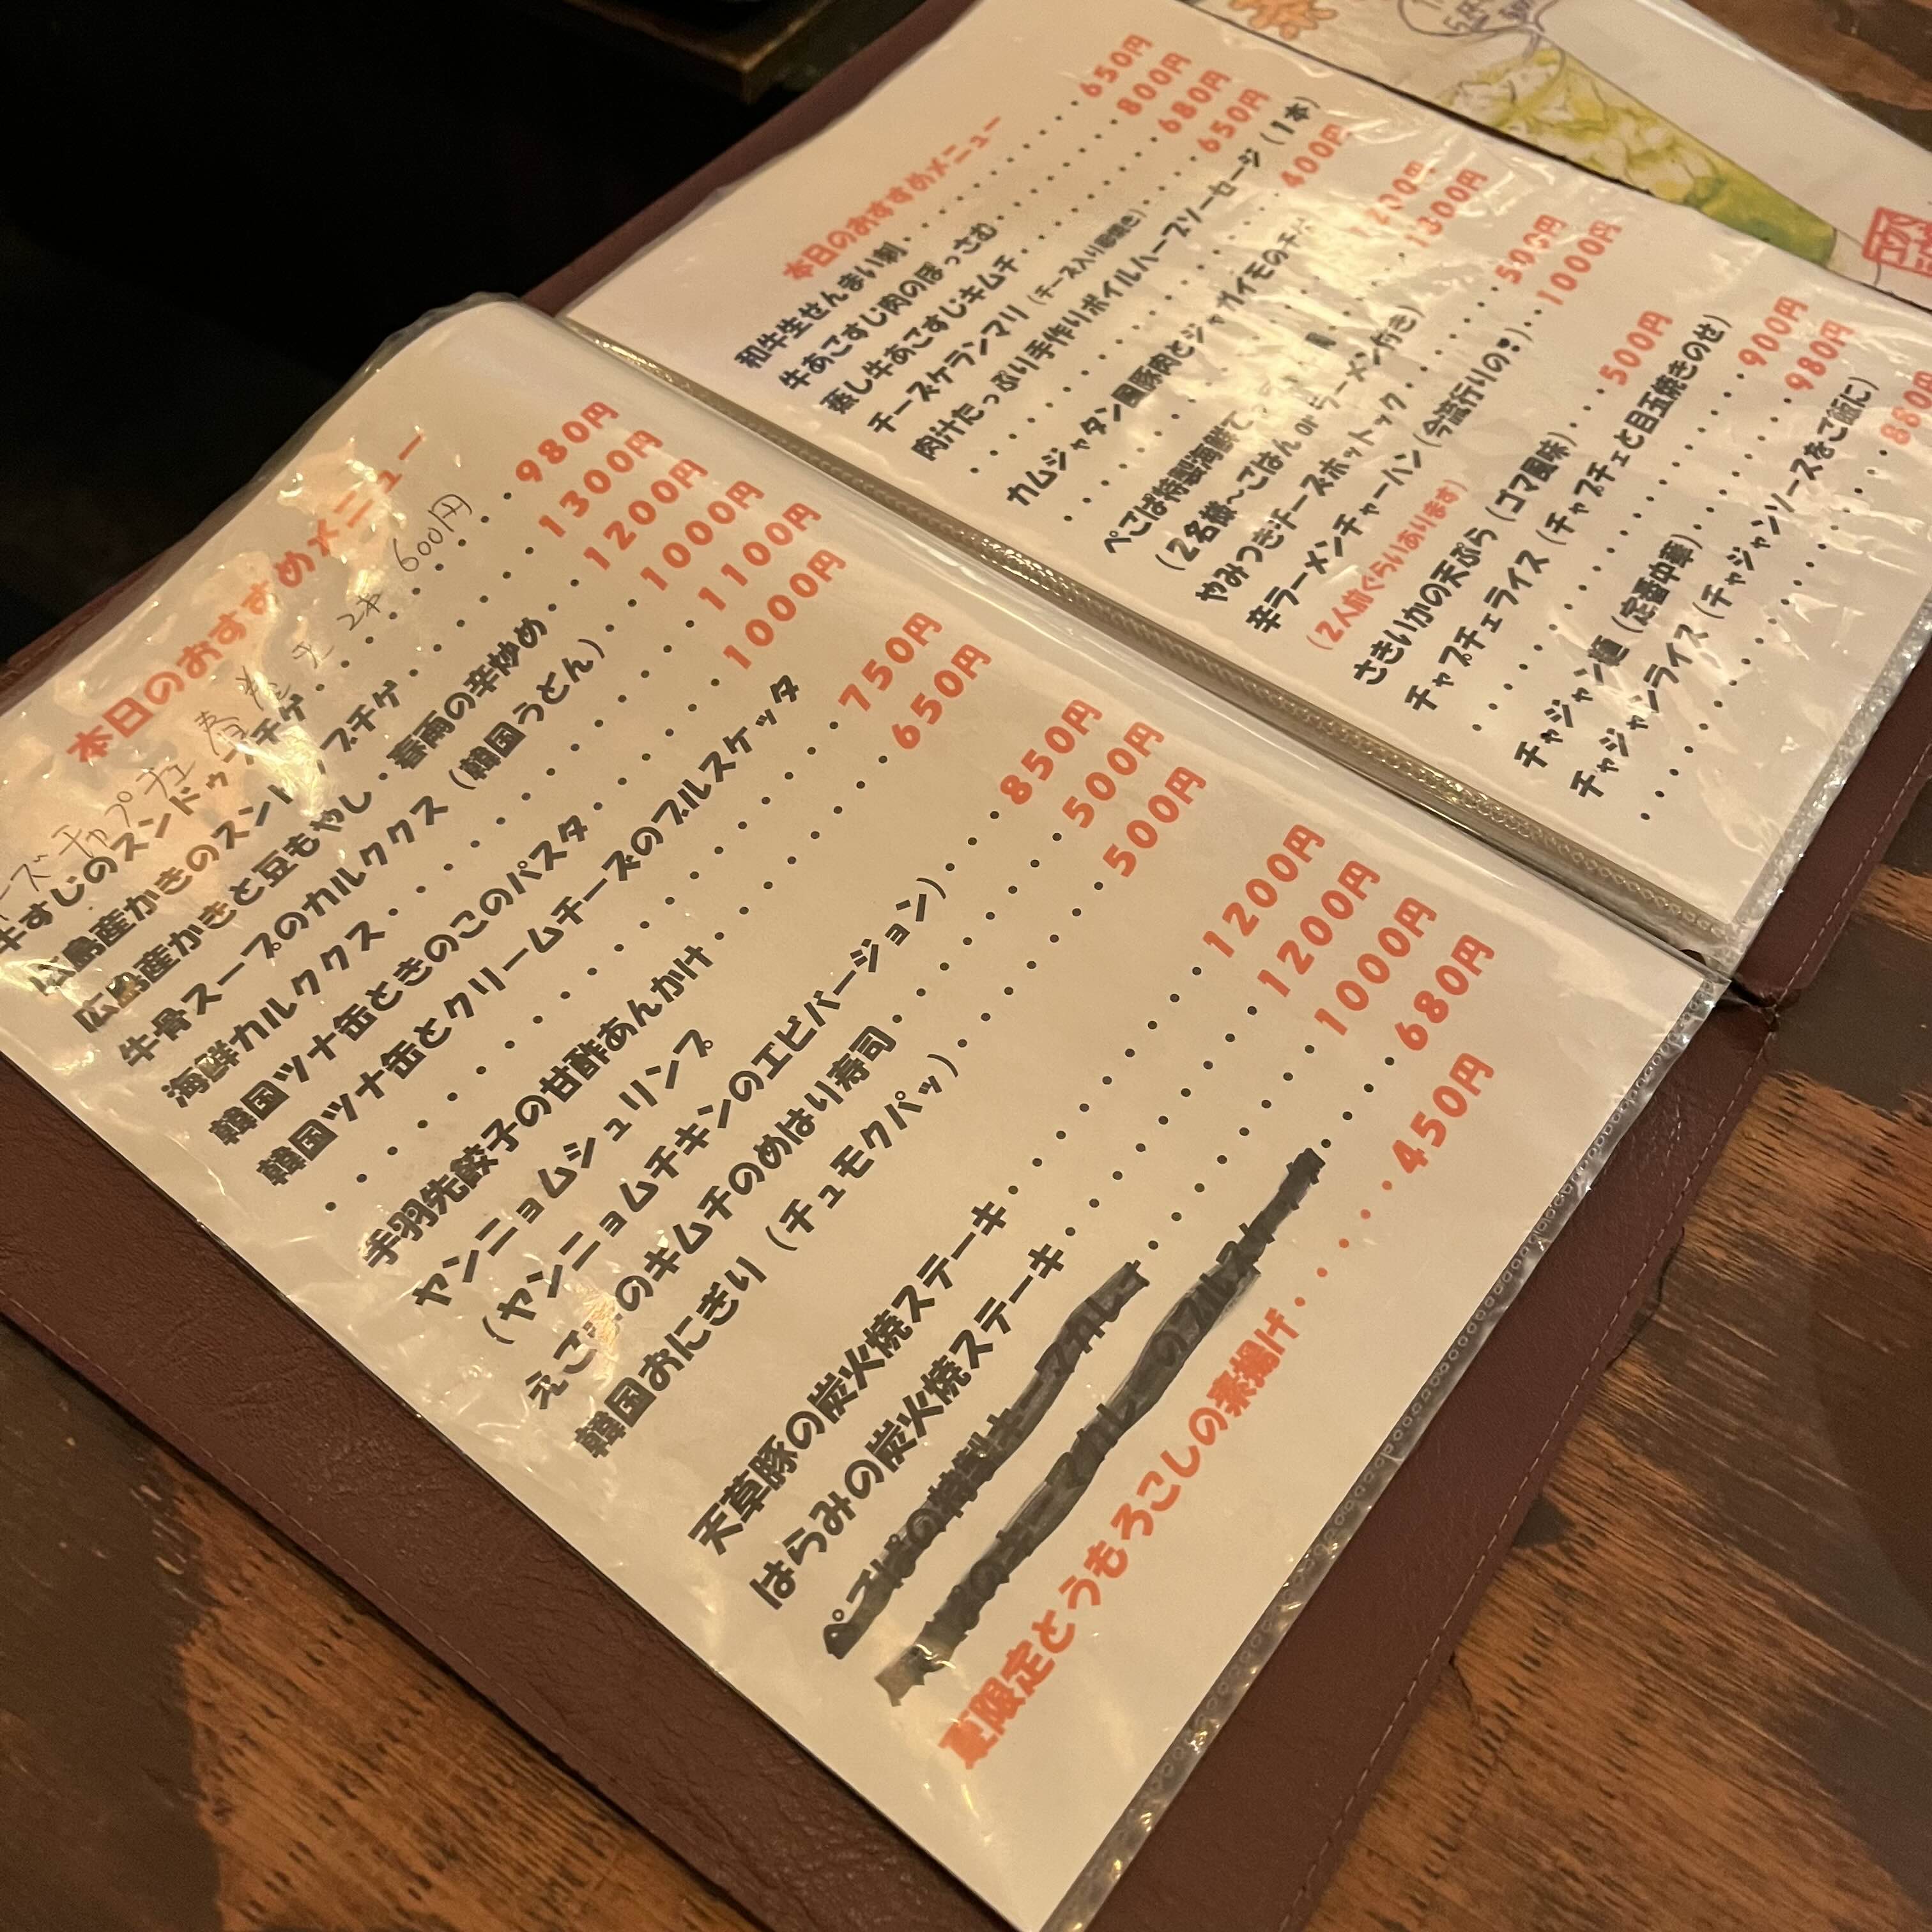 本日のおすすめメニュー
チャプチェ春巻き 2本 600円
牛すじのスンドゥブチゲ・・・・・・980円
広島産かきのスンドゥブチゲ・・・・・1300円
広島産かきと豆もやし・春雨の辛炒め・・1200円
牛骨スープのカルククス（韓国うどん）・・1000円
海鮮カルククス・・・・・・・・・・1100円
韓国ツナ缶ときのこのパスタ・・・・・1000円
韓国ツナ缶とクリームチーズのブルスケッタ
・・・・・・・・・・・・・・・・750円
手羽先餃子の甘酢あんかけ・・・・・・650円
ヤンニョムシュリンプ
（ヤンニョムチキンのエビバージョン）・・・850円
えごまのキムチのめはり寿司・・・・・・500円
韓国おにぎり（チュモクパッ）・・・・・500円
天草豚の炭火焼ステーキ・・・・・・・1200円
はらみの炭火焼ステーキ・・・・・・・1200円
・・・・・・1000円
・・・・680円
夏限定とうもろこしの素揚げ・・・・・450円
本日のおすすめメニュー
和牛生せんまい刺・・・・・・・・・・650円
牛あごすじ肉のぽっさむ・・・・・・・800円
蒸し牛あごすじキムチ・・・・・・・・680円
チーズケランマリ（チーズ入り卵焼き）・・・650円
肉汁たっぷり手作りボイルハーブソーセージ（1本）
・・・・・・・・・・・・・・・・400円
カムジャタン風豚肉とジャガイモの
・・・・・・・・・・・・・・・・1200円
ぺこぱ特製海鮮 1300円
（2名様～ごはん or ラーメン付き）
やみつきチーズホットック・・・・・・500円
辛ラーメンチャーハン（今流行りの❢）・・1000円
（2人前ぐらいあります）
さきいかの天ぷら（ゴマ風味）・・・・500円
チャプチェライス（チャプチェと目玉焼きのせ）
・・・・・・・・・・・・・・・・900円
チャジャン麺（定番中華）・・・・・・980円
チャジャンライス（チャジャンソースをご飯に）
・・・・・・・・・・・・・・・・880円